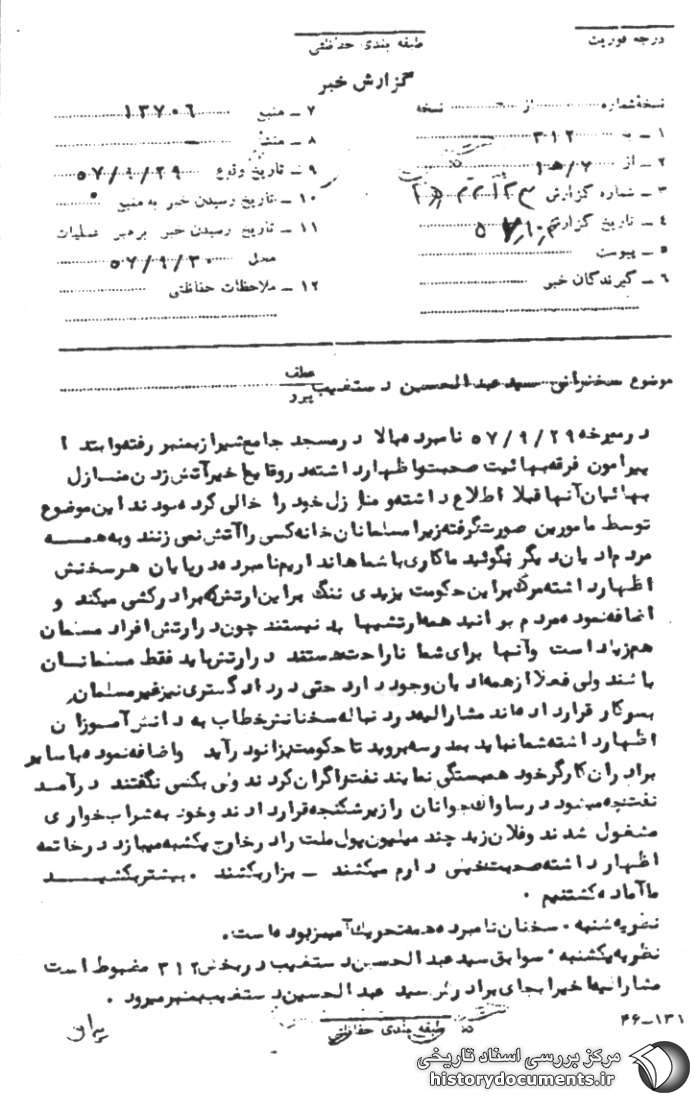 درجه فوریت
طبقه بندی حفاظتی
گزارش خبر
نسخه‌شماره ........ از ........ نسخه
۱ ـ به ۳۱۲
۲ ـ از
۳ ـ شماره گزارش
۴ ـ تاریخ گزارش
۵ ـ پیوست
۶ ـ گیرندگان خبر
۷ ـ منبع ۱۳۷۰۶
۸ ـ منشأ ـ
۹ ـ تاریخ وقوع ۵۷/۹/۲۹
۱۰ ـ تاریخ رسیدن خبر به منبع
۱۱ ـ تاریخ رسیدن خبر برهبر عملیات
محل ۵۷/۹/۳۰
۱۲ ـ ملاحظات حفاظتی
موضوع سخنرانی سید عبدالحسین دستغیب
عطف
پیرو
در مورخه ۵۷/۹/۲۹ نامبرده بالا در مسجد جامع شیراز بمنبر رفته و ابتدا
پیرامون فرقه بهائیت صحبت و اظهار داشته در وقایع اخیر آتش زدن منازل
بهائیان آنها قبلا اطلاع داشته و منازل خود را خالی کرده بودند این موضوع
توسط مامورین صورت گرفته زیرا مسلمانان خانه کسی را آتش نمی زنند و به همه
مردم ادیان دیگر بگوئید ما کاری با شماها نداریم نامبرده در پایان هر سخنش
اظهار داشته مرگ بر این حکومت یزیدی ننگ بر این ارتش که برادر کشی میکند و
اضافه نموده مردم بدانید همه ارتشیها بد نیستند چون در ارتش افراد مسلمان
هم زیاد است و آنها برای شما ناراحت هستند در ارتش باید فقط مسلمانان
باشند ولی فعلا از همه ادیان وجود دارد حتی در دادگستری نیز غیر مسلمان
بسر کار قرار داده اند مشارالیه در دنباله سخنانش خطاب به دانش آموزان
اظهار داشته شما نباید بمدرسه بروید تا حکومت بزانو درآید و اضافه نموده با سایر
برادران کارگر خود همبستگی نمایند نفت را گران کردند ولی بکسی نگفتند درآمد
نفت چه میشود در ساواک جوانان را زیر شکنجه قرار دادند و خود به شراب خواری
مشغول شدند و فلان زید چند میلیون پول ملت را در خارج یکشبه میبازد در خاتمه
اظهار داشته صحبت خمینی دارم میکشند ـ بزار بکشند . بیشتر بکشید
ما آماده کشتنیم .
نظریه شنبه . سخنان نامبرده همه تحریک آمیز بوده است .
نظریه یکشنبه . سوابق سید عبدالحسین دستغیب در بخش ۳۱۲ مضبوط است
مشارالیه اخیرا بجای برادرش سید عبدالحسین دستغیب بمنبر میرود .
۴۶-۱۳۱
طبقه بندی حفاظتی
مرکز بررسی اسناد تاریخی
historydocuments.ir